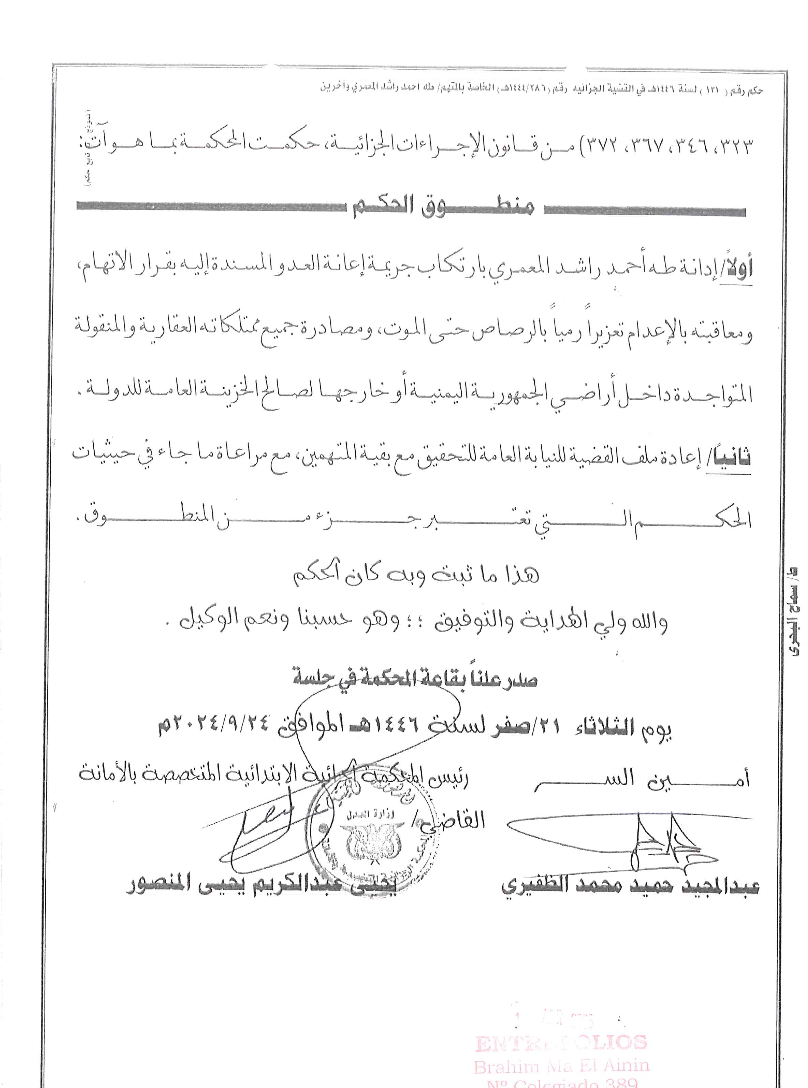 حكم رقم ( ١٣١ ) لسنة ١٤٤٦هـ في القضية الجزائية رقم (١٤٤٤/٢٨٦هـ) الخاصة بالمتهم/ طه احمد راشد المعمري وآخرين
٣٢٣، ٣٤٦، ٣٦٧، ٣٧٢) من قانون الإجراءات الجزائية، حكمت المحكمة بما هو آت:
منطوق الحكم
أولاً/ إدانة طه أحمد راشد المعمري بارتكاب جريمة إعانة العدو المسندة إليه بقرار الاتهام،
ومعاقبته بالإعدام تعزيراً رمياً بالرصاص حتى الموت، ومصادرة جميع ممتلكاته العقارية والمنقولة
المتواجدة داخل أراضي الجمهورية اليمنية أو خارجها لصالح الخزينة العامة للدولة.
ثانياً/ إعادة ملف القضية للنيابة العامة للتحقيق مع بقية المتهمين، مع مراعاة ما جاء في حيثيات
الحكم التي تعتبر جزء من المنطوق.
هذا ما ثبت وبه كان الحكم
والله ولي الهداية والتوفيق ؛؛ وهو حسبنا ونعم الوكيل .
صدر علناً بقاعة المحكمة في جلسة
يوم الثلاثاء ٢١/صفر لسنة ١٤٤٦هـ الموافق ٢٠٢٤/٩/٢٤م
أمين السر
رئيس المحكمة الجزائية الابتدائية المتخصصة بالأمانة
القاضي/
وزارة العدل
عبدالمجيد حميد محمد الظفيري
يحيى عبدالكريم يحيى المنصور
ط/ سماح البحري
ENTRE FOLIOS
Brahim Ma El Ainin
Nº Colegiado 389